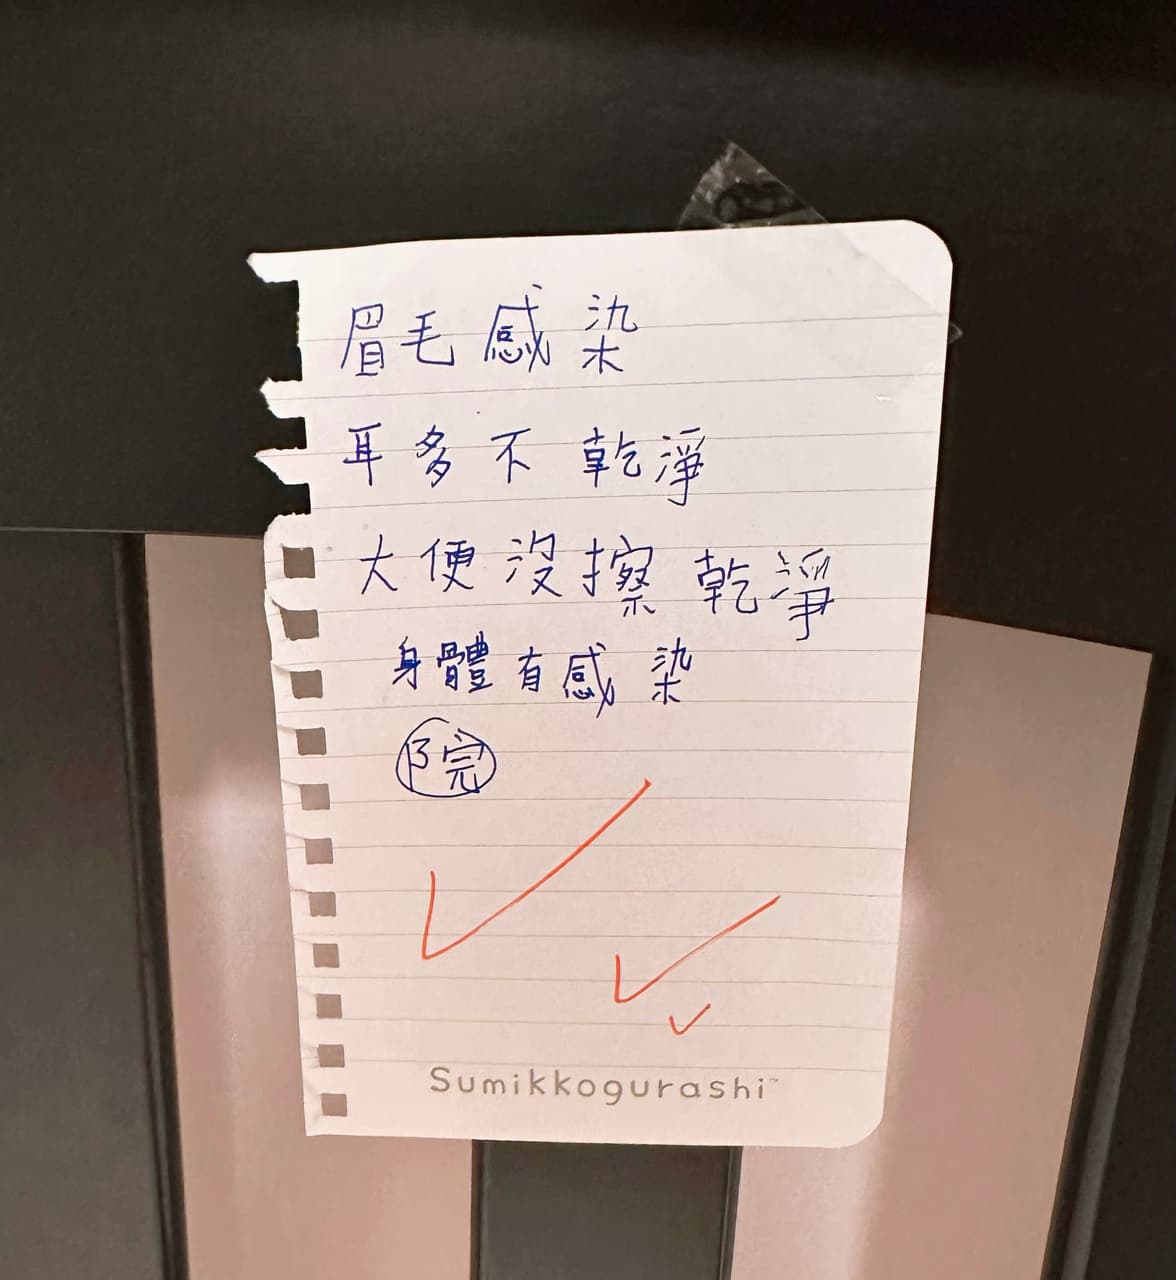 眉毛感染
耳多不乾淨
大便沒擦乾淨
身體有感染
院
Sumikkogurashi™